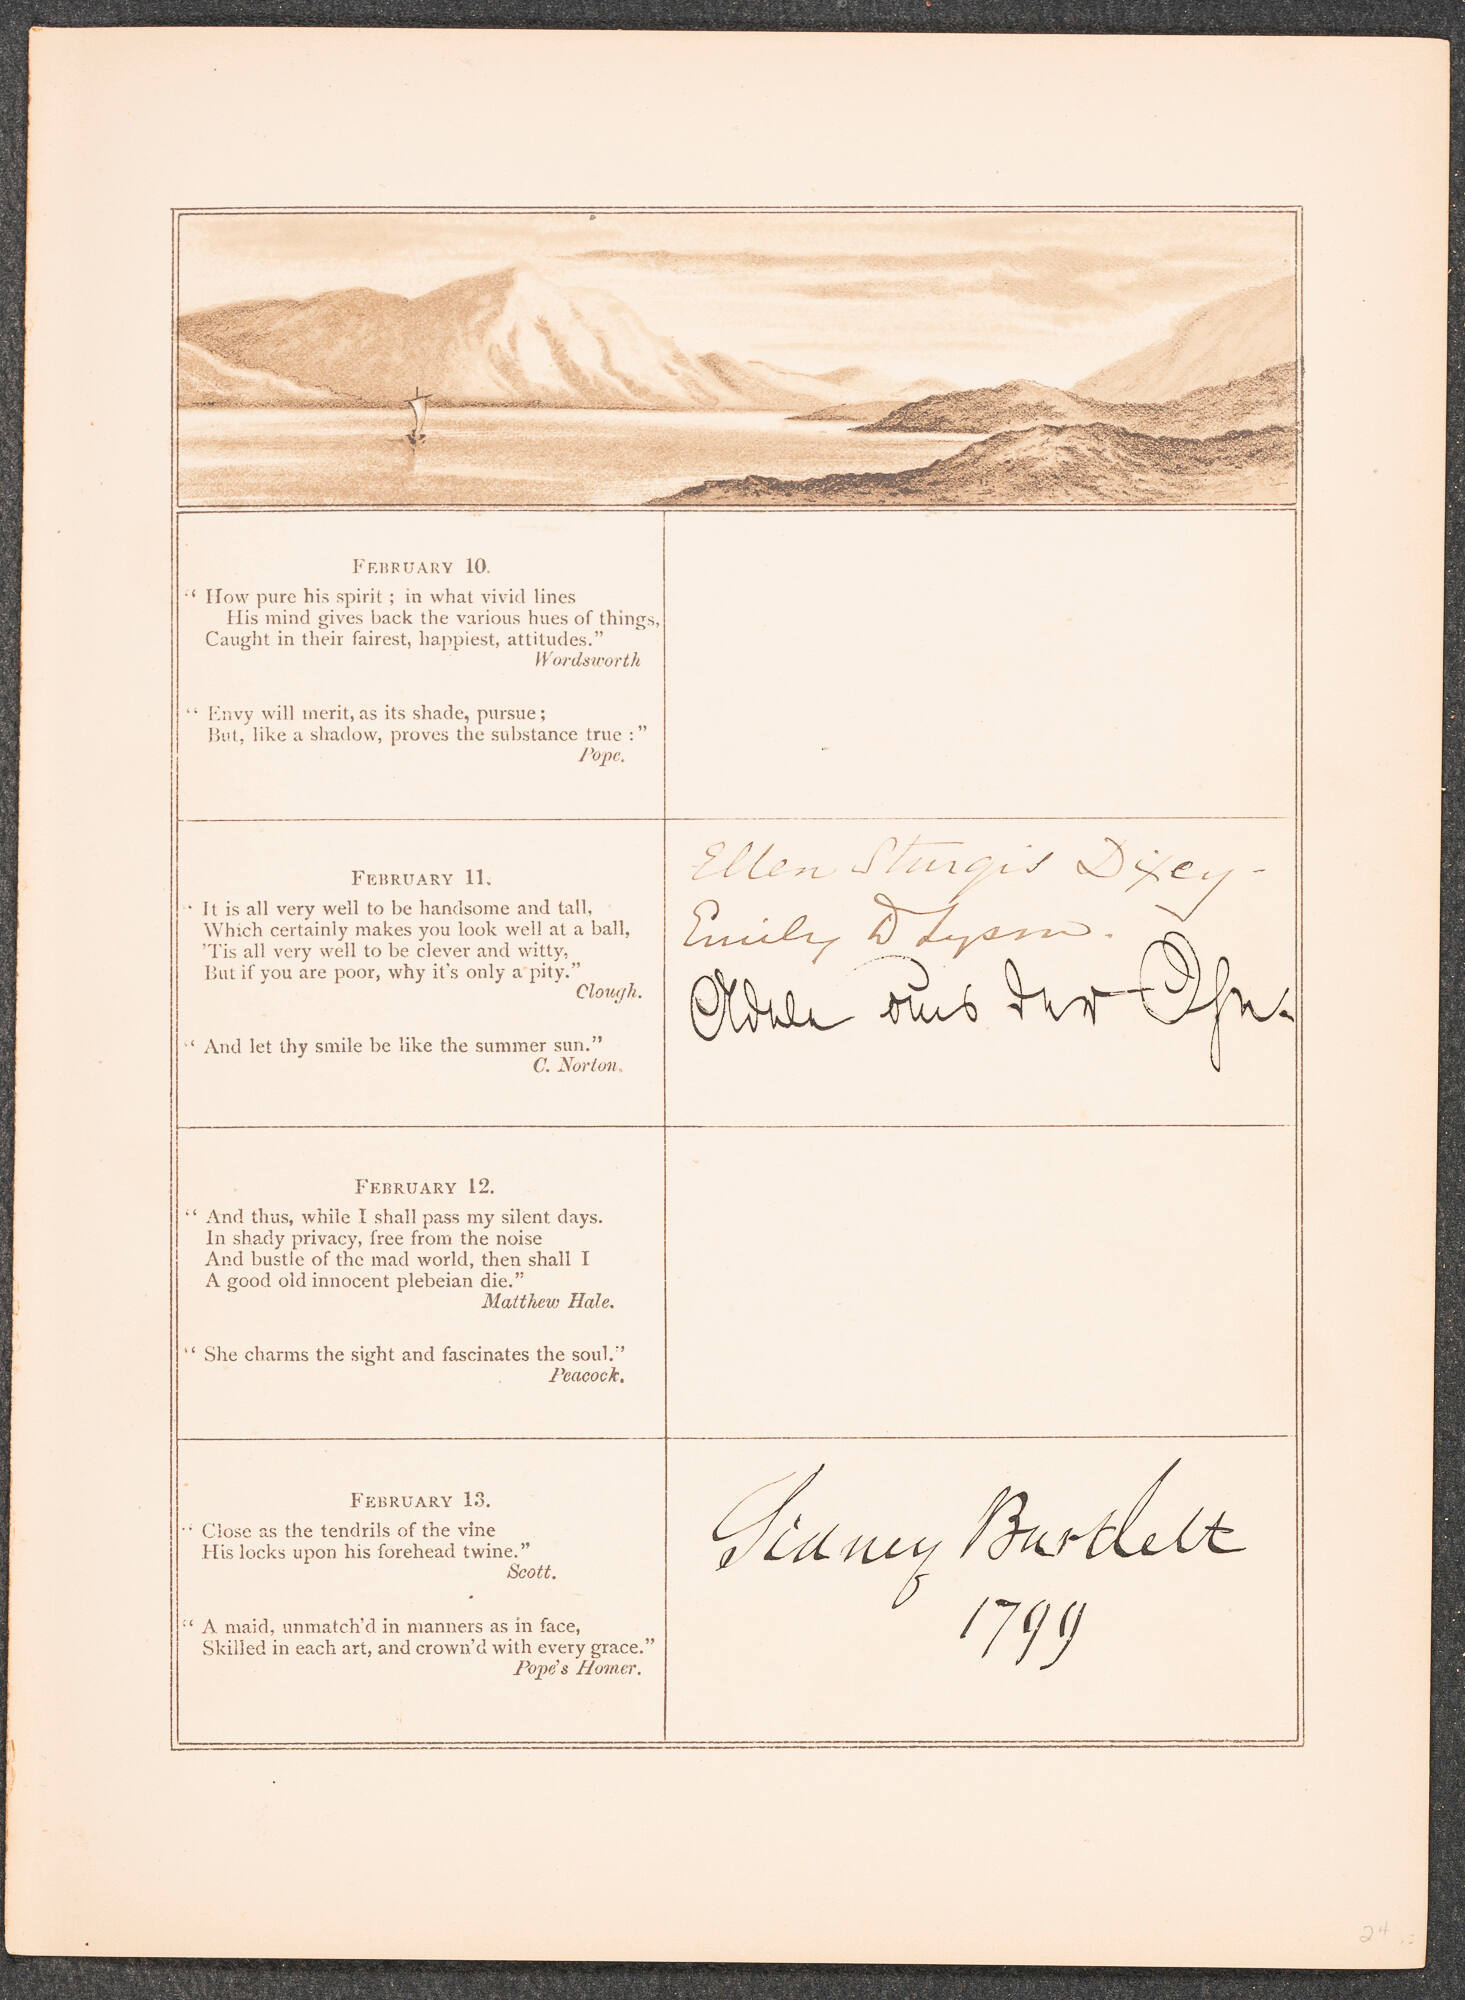 FEBRUARY 10.
“ How pure his spirit ; in what vivid lines
His mind gives back the various hues of things,
Caught in their fairest, happiest, attitudes.”
Wordsworth
“ Envy will merit, as its shade, pursue ;
But, like a shadow, proves the substance true :”
Pope.
FEBRUARY 11.
“ It is all very well to be handsome and tall,
Which certainly makes you look well at a ball,
'Tis all very well to be clever and witty,
But if you are poor, why it's only a pity.”
Clough.
“ And let thy smile be like the summer sun.”
C. Norton.
Ellen Sturgis Dixey -
Emily D Tyson.
Adele aus der Ohe.
FEBRUARY 12.
“ And thus, while I shall pass my silent days.
In shady privacy, free from the noise
And bustle of the mad world, then shall I
A good old innocent plebeian die.”
Matthew Hale.
“ She charms the sight and fascinates the soul.”
Peacock.
FEBRUARY 13.
“ Close as the tendrils of the vine
His locks upon his forehead twine.”
Scott.
“ A maid, unmatch'd in manners as in face,
Skilled in each art, and crown'd with every grace.”
Pope's Homer.
Sidney Bartlett
1799
24